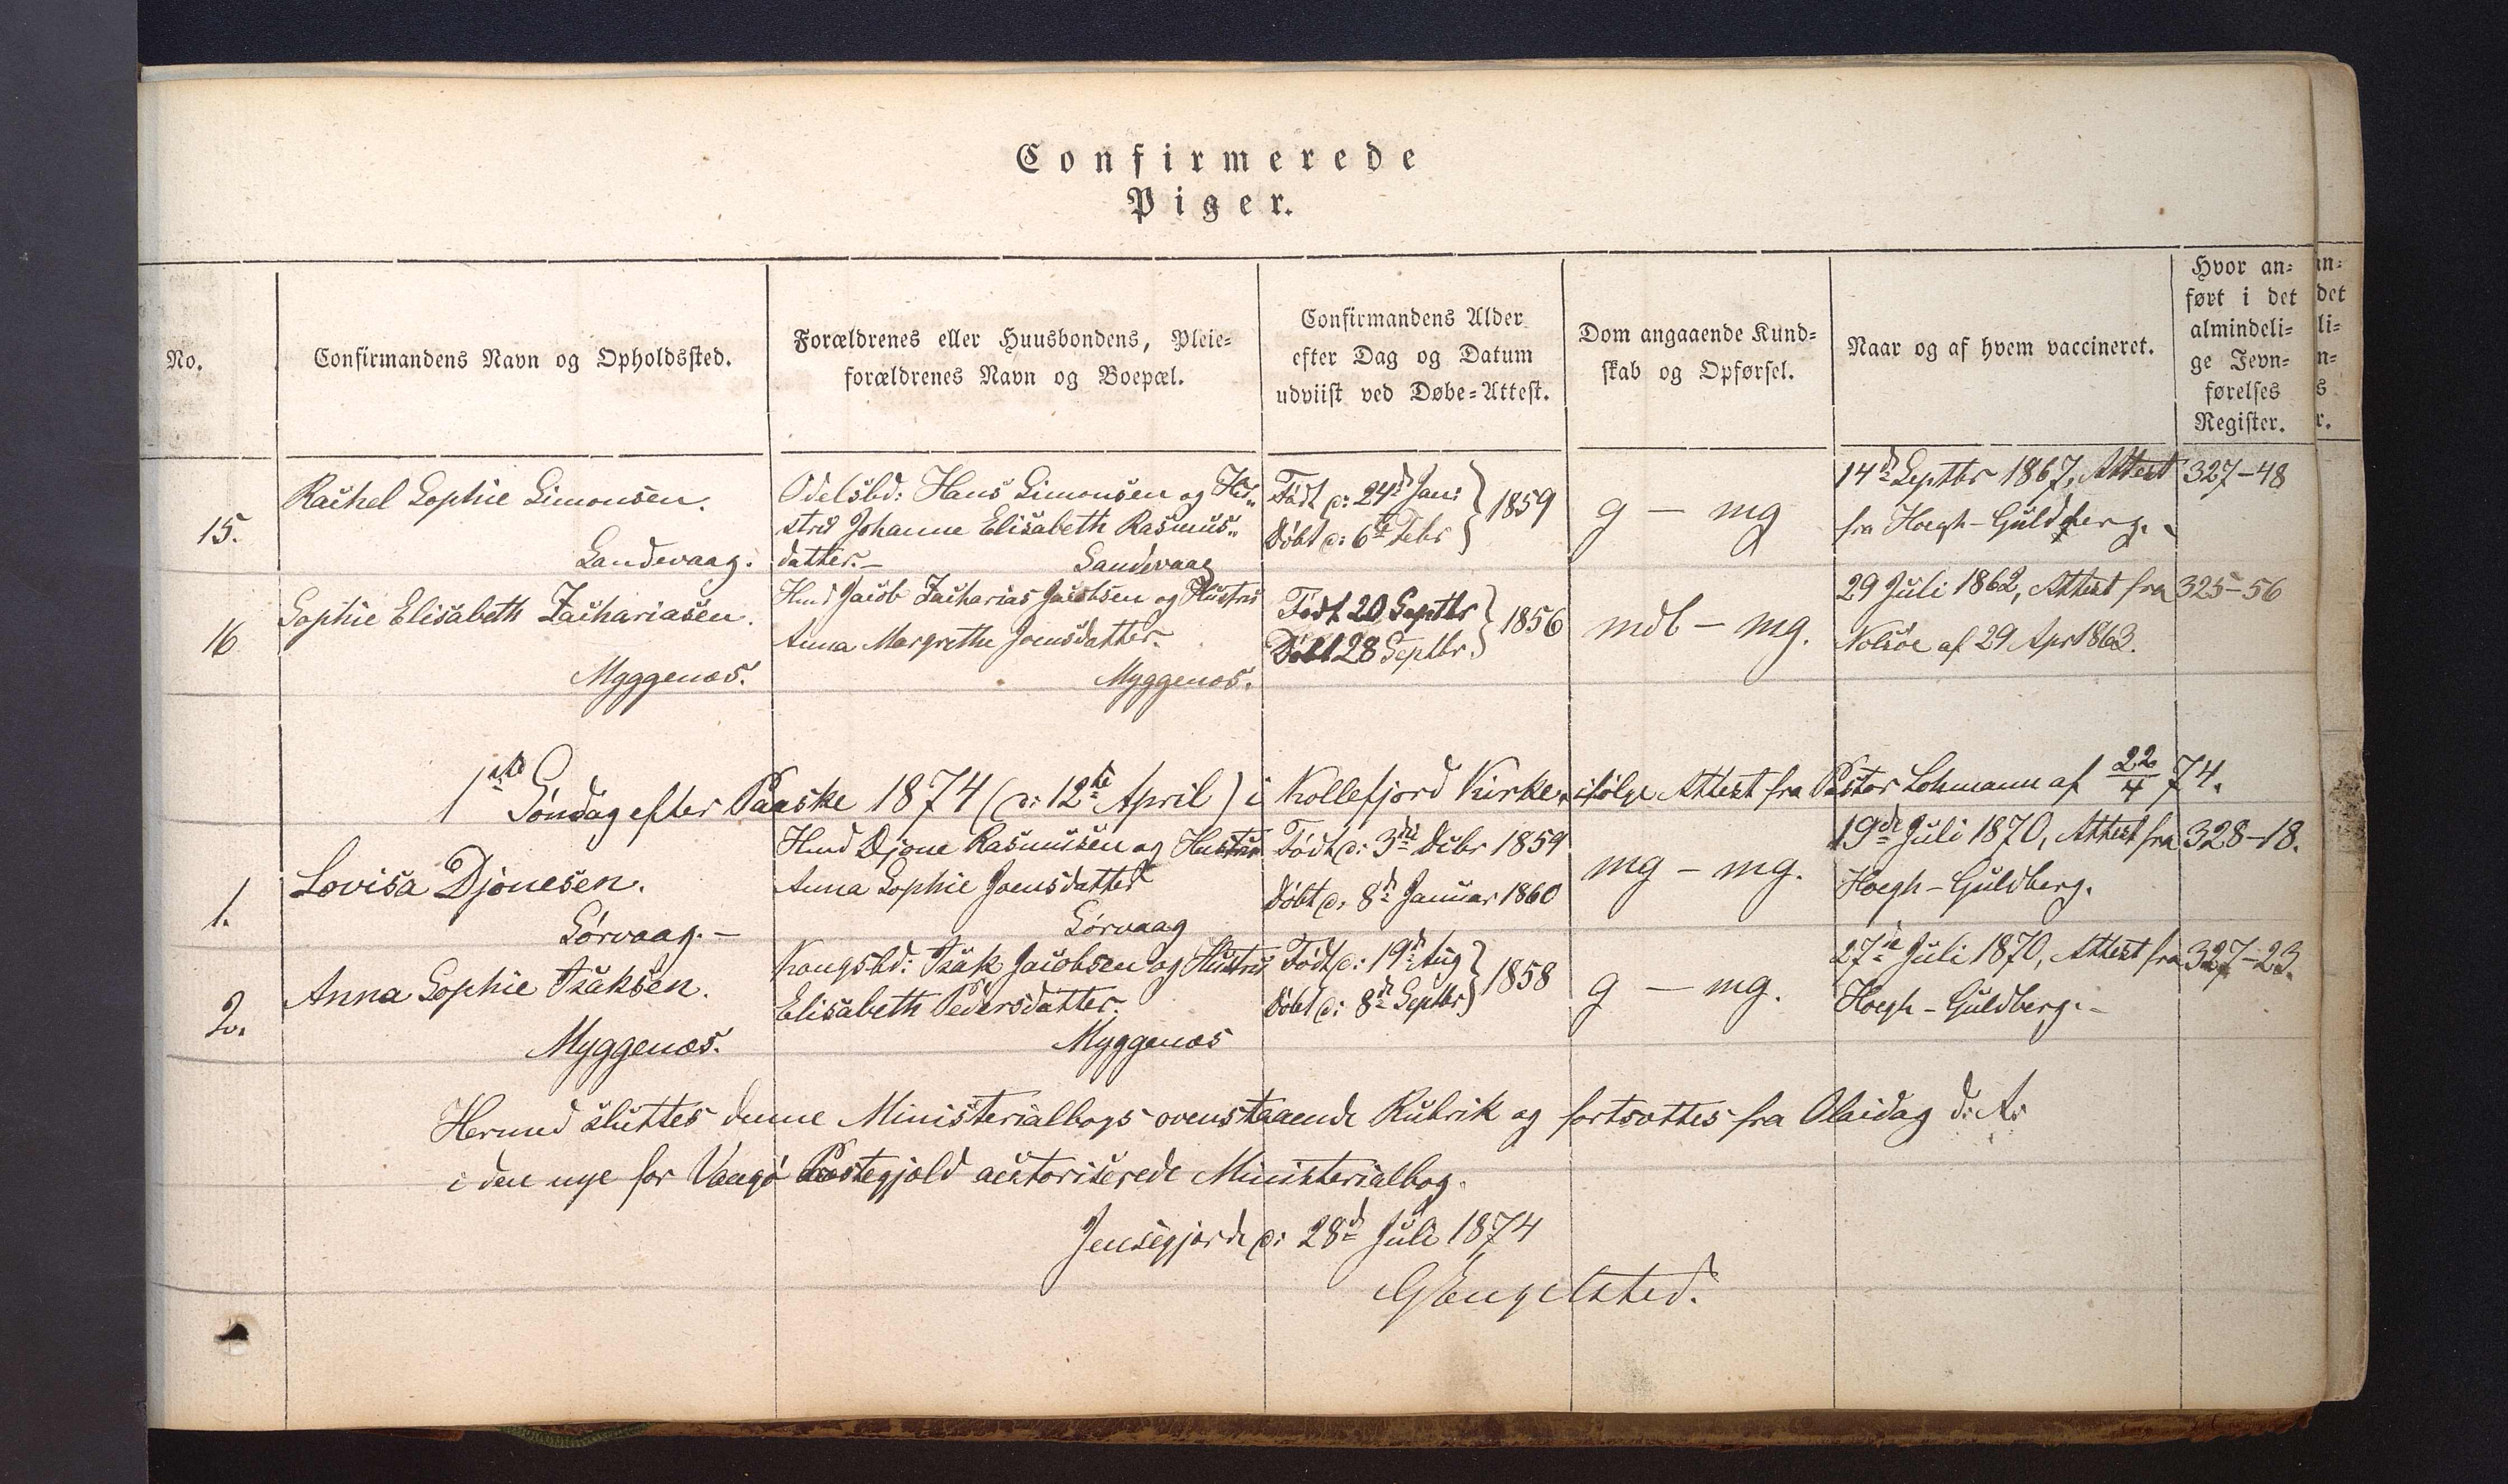 Confirmerede
Piger.
No.
Confirmandens Navn og Opholdssted.
Forældrenes eller Huusbondens, Pleie-
forældrenes Navn og Boepæl.
Confirmandens Alder
efter Dag og Datum
udviist ved Døbe-Attest.
Dom angaaende Kund-
skab og Opførsel.
Naar og af hvem vaccineret.
Hvor an-
ført i det
almindeli-
ge Jevn-
førelses
Register.
15.
Rachel Sophie Simonsen.
Sandevaag.
Odelsbd: Hans Simonsen og Hu-
stru Johanne Elisabeth Rasmus-
datter.— Sandevaag
Født d: 24d Jan:
Døbt d: 6te Febr
1859
g — mg
14d Septbr 1867, Attest
fra Hoegh-Guldberg.
327-48
16
Sophie Elisabeth Zachariasen.
Myggenæs.
Hmd Jacob Zacharias Jacobsen og Hustru
Anna Margrethe Joensdatter.
Myggenæs.
Født 20 Septbr
Døbt 28 Septbr.
1856
mdl — mg.
29 Juli 1862, Attest fra
Nolsøe af 29 Apr 1863.
325-56
1ste Søndag efter Paaske 1874 (d: 12te April) i Kollefjord Kirke, ifølge Attest fra Pastor Lohmann af 22/4 74.
1.
Lovisa Djonesen.
Sørvaag.—
Hmd Djone Rasmussen og Hustru
Anna Sophie Joensdatter
Sørvaag
Født d: 3die Decbr 1859
Døbt d: 8d Januar 1860
mg — mg.
19de Juli 1870, Attest fra
Hoegh-Guldberg.
328-18.
2.
Anna Sophie Isaksen.
Myggenæs.
Kongsbd: Isak Jacobsen og Hustru
Elisabeth Pedersdatter.
Myggenæs
Født d: 19d Aug
Døbt d: 8d Septbr
1858
g — mg.
27de Juli 1870, Attest fra
Hoegh-Guldberg.—
327-23.
Hermed sluttes denne Ministerialbogs ovenstaaende Rubrik og fortsættes fra Olaidag d: A:
i den nye for Vaagø Præstegjæld auctoriserede Ministerialbog.
Jensegjerde d: 28d Juli 1874